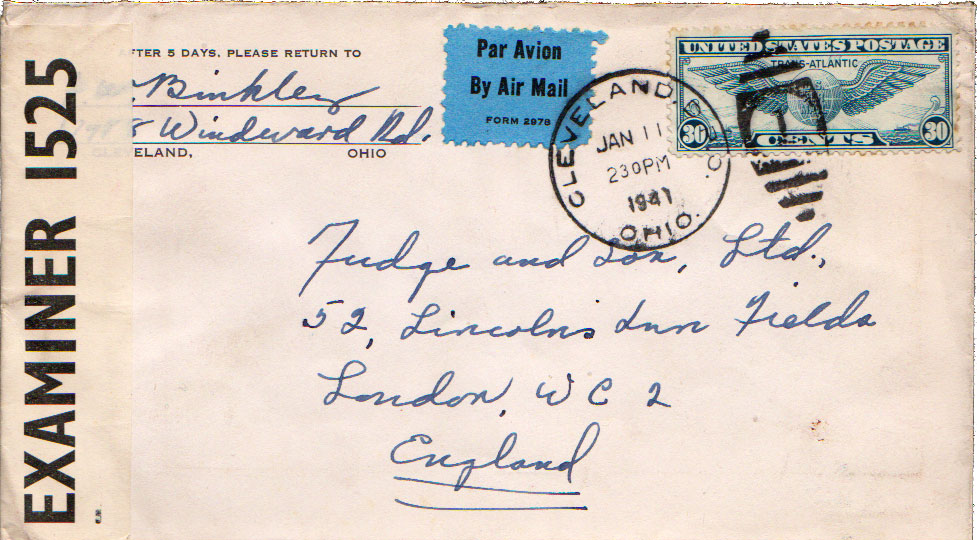 EXAMINER 1525
FTER 5 DAYS, PLEASE RETURN TO
Binkley
Windward Rd.
ELAND, OHIO
Par Avion
By Air Mail
FORM 2978
CLEVELAND, O.
JAN 11
230PM
1941
OHIO.
UNITED STATES POSTAGE
TRANS-ATLANTIC
30 CENTS 30
Fudge and Son, Ltd.,
52, Lincolns Inn Fields
London, WC 2
England